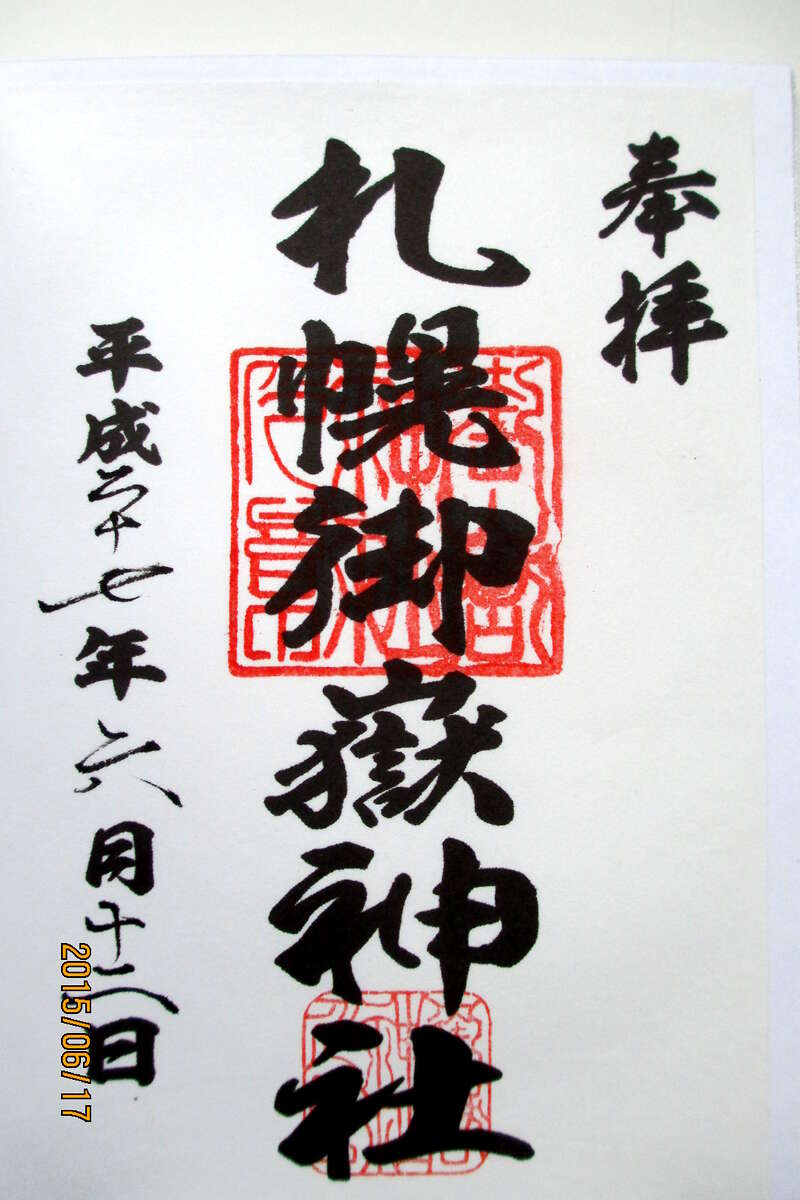 奉拝
札幌御嶽神社
平成二十七年六月十二日
2015/06/17